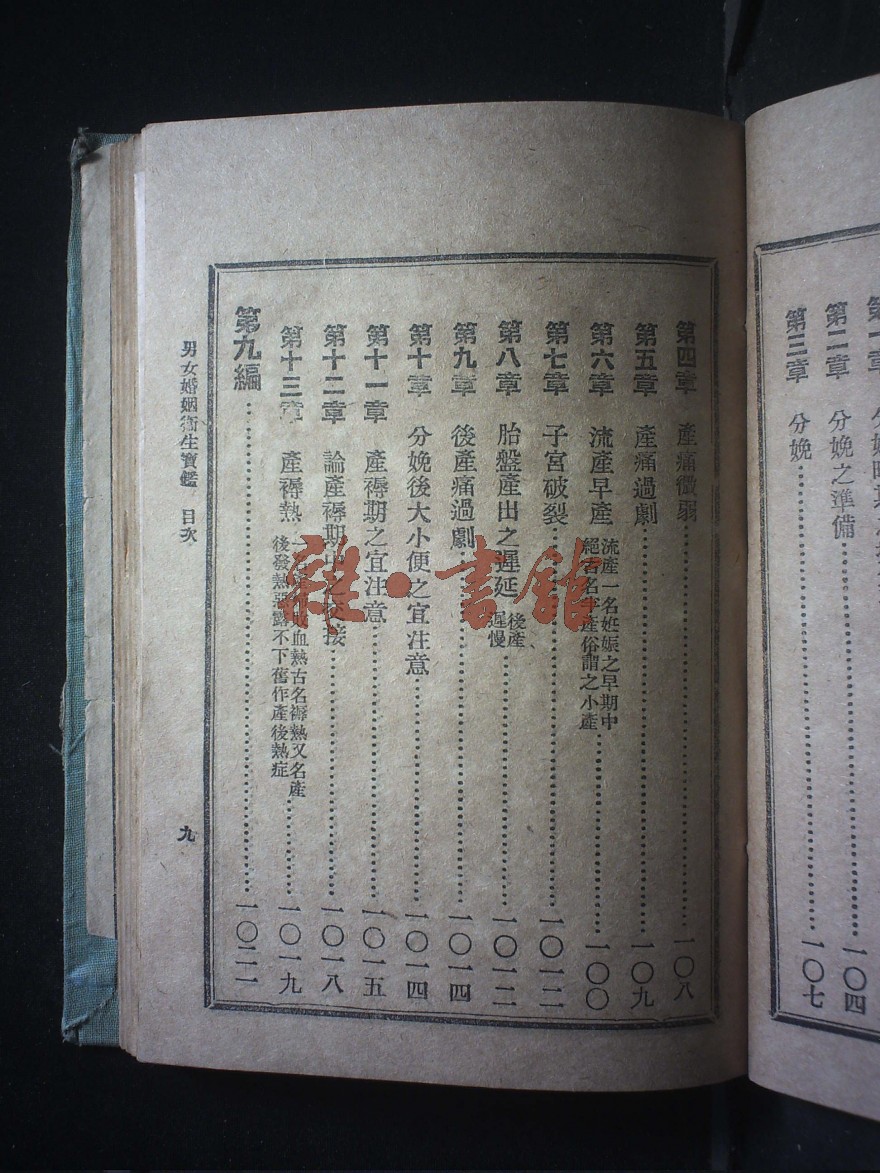 第二章 分娩之準備……一〇四
第三章 分娩……一〇七
第四章 產痛微弱……一〇八
第五章 產痛過劇……一〇九
第六章 流產早產
流產一名妊娠之早期中
名半產俗謂之小產……一〇〇
第七章 子宮破裂……一〇一二
第八章 胎盤產出之遲延
後產
遲慢……一〇一二
第九章 後產痛過劇……一〇一四
第十章 分娩後大小便之宜注意……一〇一四
第十一章 產褥期之宜注意……一〇一五
第十二章 論產褥期中之交接……一〇一八
第十三章 產褥熱
血熱古名褥熱又名產
後發熱惡露不下舊作產後熱症……一〇一九
第九編……一〇二一
男女婚姻衛生寶鑑 目次
九
雜·書館